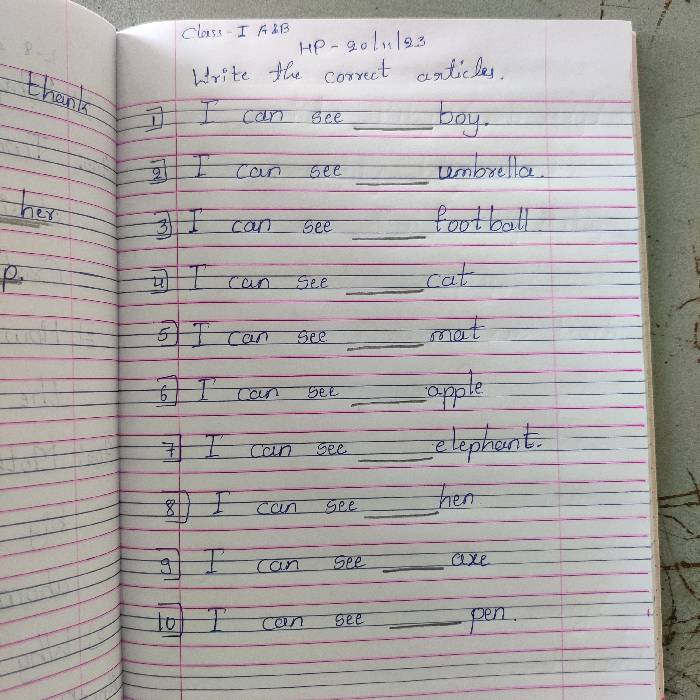 thank
her
p.
Class-I A&B
HP-20/11/23
Write the correct articles.
1 I can see ____ boy.
2 I can see ____ umbrella.
3 I can see ____ football
4 I can see ____ cat
5 I can see ____ mat
6 I can see ____ apple
7 I can see ____ elephant.
8 I can see ____ hen
9 I can see ____ axe
10 I can see ____ pen.